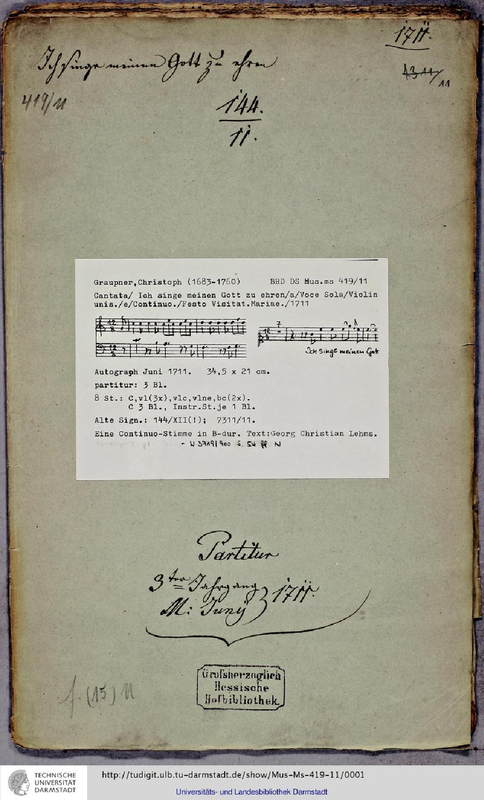 1711.
Ich singe meinen Gott zu ehren
4311/11
419/11
144.
11.
Graupner,Christoph (1683-1760) BRD DS Mus.ms 419/11
Cantata/ Ich singe meinen Gott zu ehren/a/Voce Sola/Violin
unis./e/Continuo./Festo Visitat.Mariae./1711
Ich singe meinen Gott
Autograph Juni 1711. 34,5 x 21 cm.
partitur: 3 Bl.
8 St.: C,vl(3x),vlc,vlne,bc(2x).
C 3 Bl., Instr.St.je 1 Bl.
Alte Sign.: 144/XII(!); 7311/11.
Eine Continuo-Stimme in B-dur. Text:Georg Christian Lehms.
Partitur
3ter Jahrgang
M: Juny 1711.
f. (15) 11
Großherzoglich
Hessische
Hofbibliothek.
TECHNISCHE
UNIVERSITÄT
DARMSTADT
http://tudigit.ulb.tu-darmstadt.de/show/Mus-Ms-419-11/0001
Universitäts- und Landesbibliothek Darmstadt